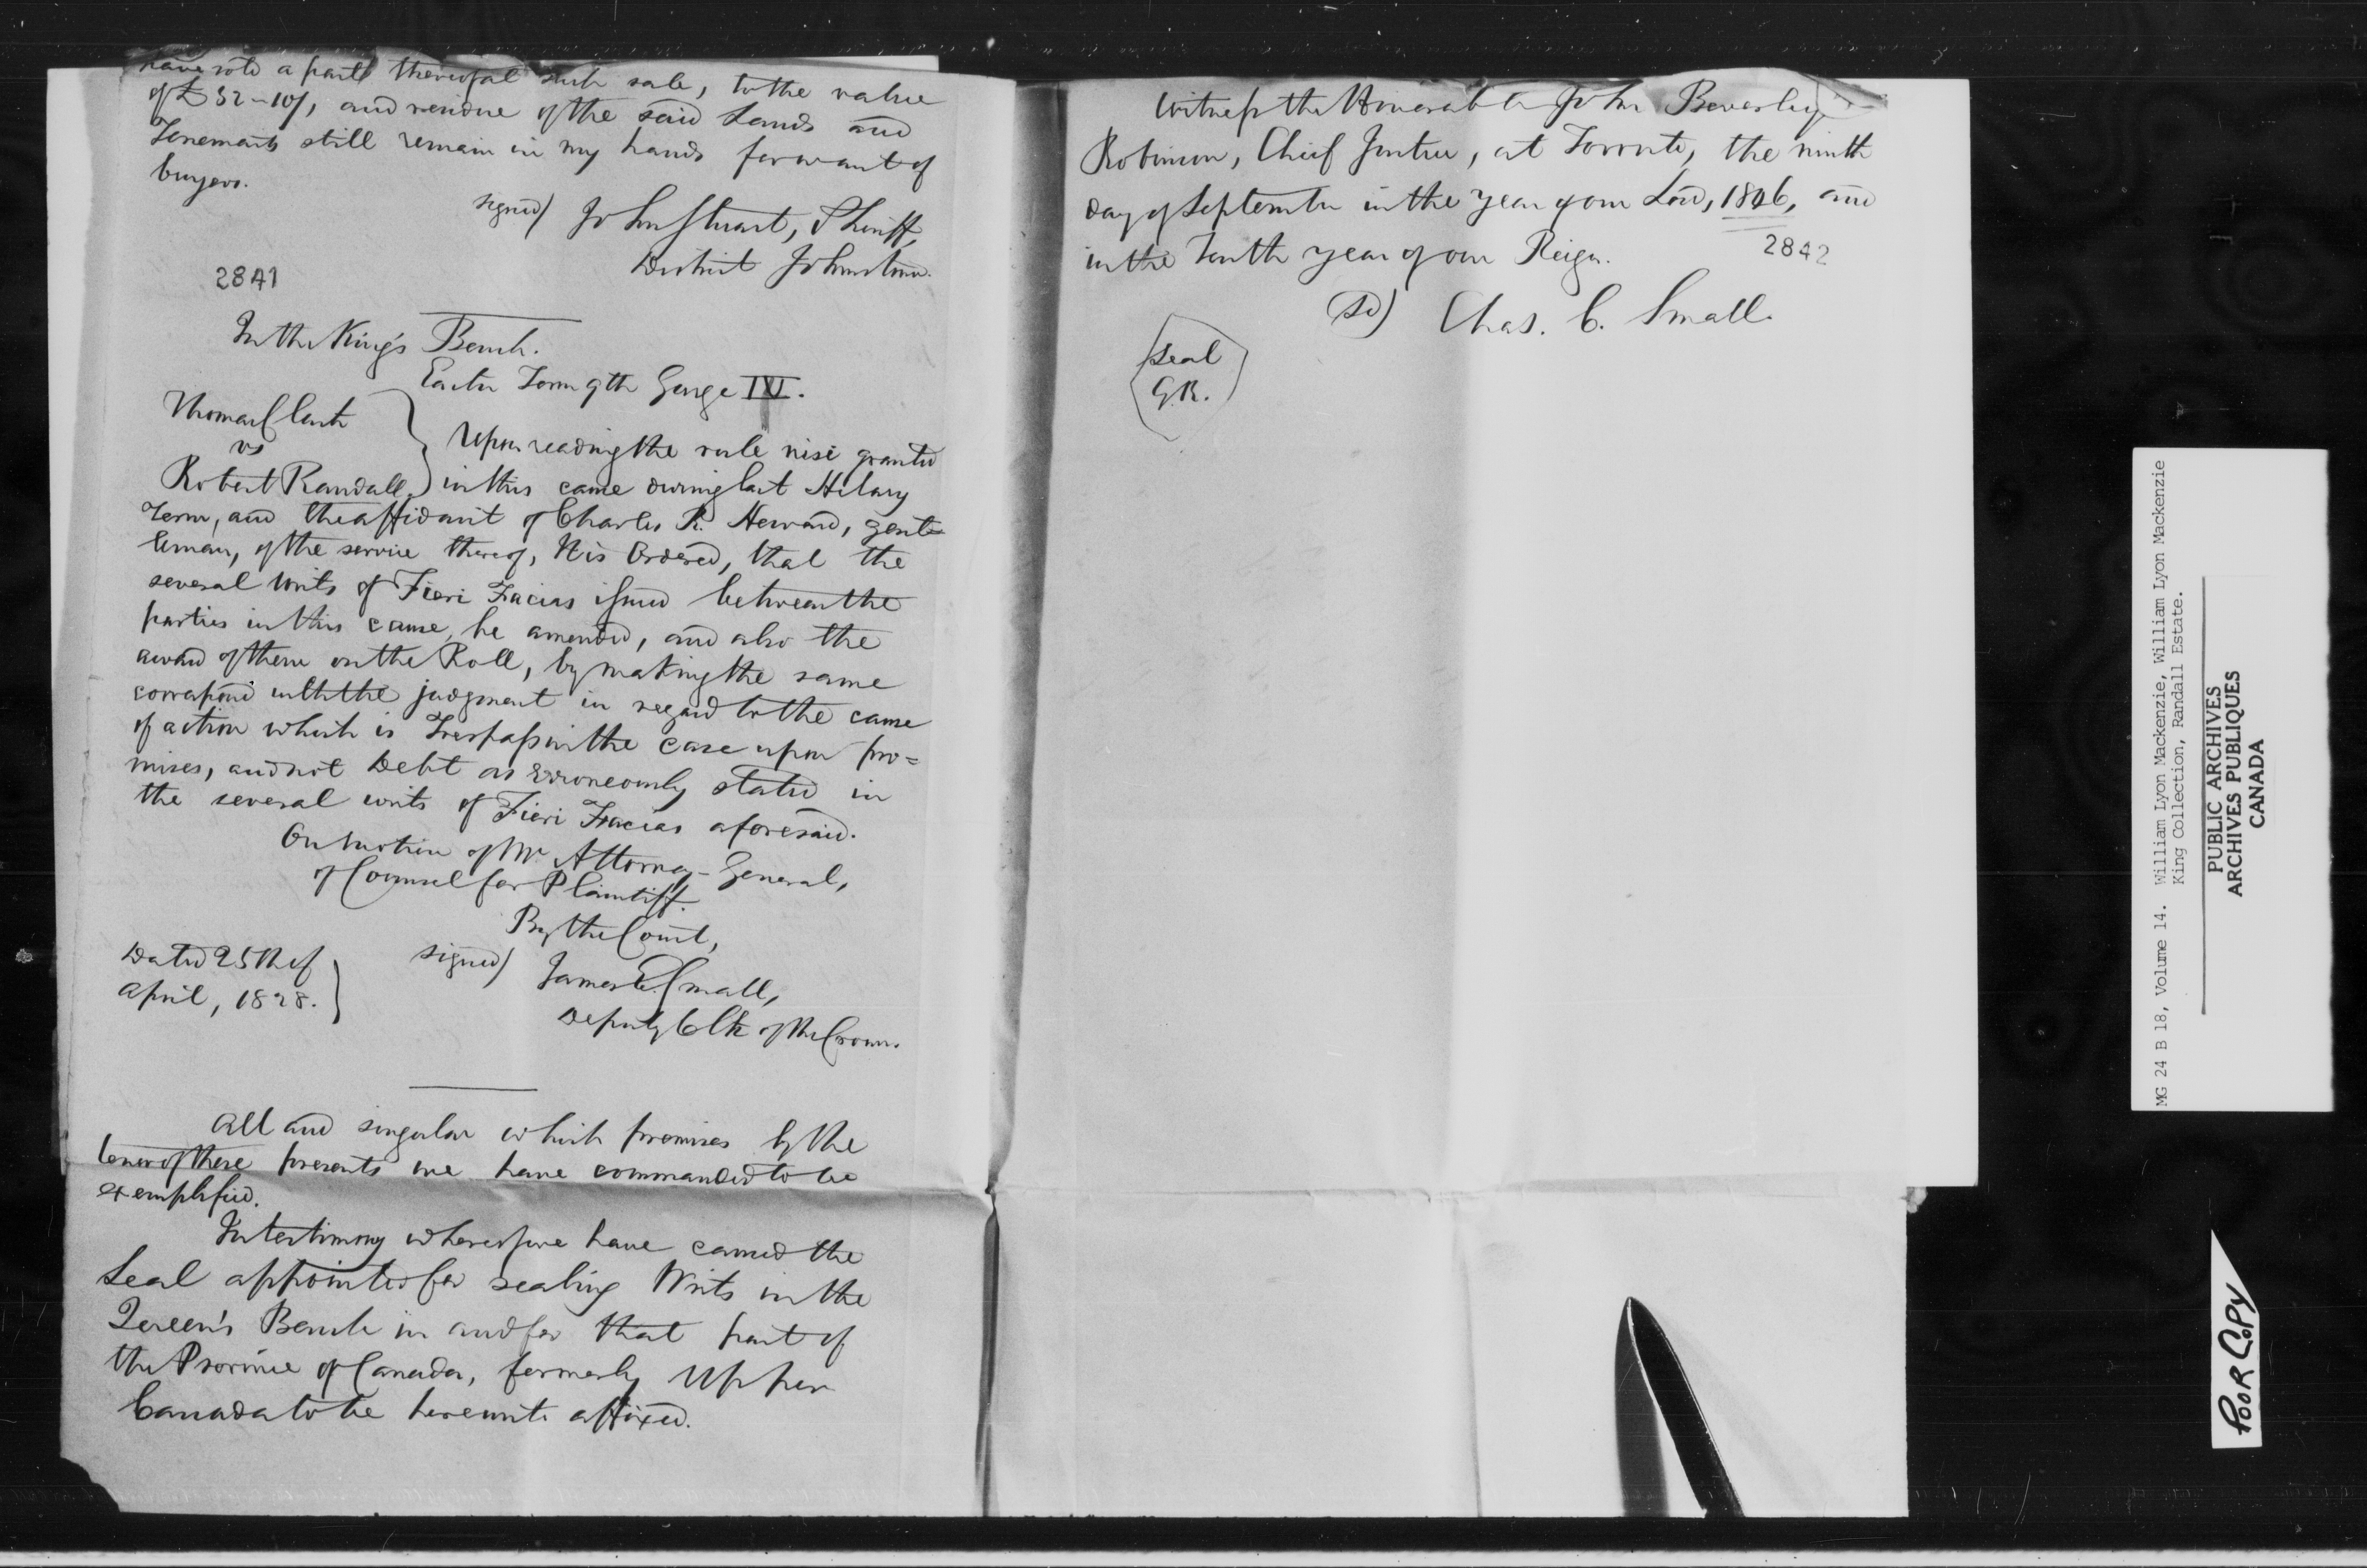 have sold a part thereof at such sale, to the value
of £32-10/, and residue of the said Lands and
Tenements still remain in my hands for want of
buyers.
signed) John Stuart, Sheriff,
District Johnstown.
2841
In the King's Bench.
Easter Term 9th George IV.
Thomas Clark
vs
Robert Randall.
Upon reading the rule nisi granted
in this cause during last Hilary
Term, and the affidavit of Charles R. Heward, gent-
leman, of the service thereof, It is Ordered, that the
several Writs of Fieri Facias issued between the
parties in this cause, be amended, and also the
award of them on the Roll, by making the same
correspond with the judgment in regard to the cause
of action which is Trespass in the case upon pro=
mises, and not Debt as erroneously stated in
the several writs of Fieri Facias aforesaid.
On motion of Mr Attorney-General,
of Counsel for Plaintiff.
By the Court,
Dated 25th of
April, 1828.
signed) James E. Small,
Deputy Clk of the Crown.
All and singular which premises by the
tenor of these presents we have commanded to be
exemplified.
In testimony whereof we have caused the
Seal appointed for sealing Writs in the
Queen's Bench in and for that part of
the Province of Canada, formerly Upper
Canada to be hereunto affixed.
Witness the Honorable John Beverley
Robinson, Chief Justice, at Toronto, the ninth
day of September in the year of our Lord, 1846, and
in the Tenth year of our Reign.
2842
Sd) Chas. C. Small.
Seal
G.R.
MG 24 B 18, Volume 14. William Lyon Mackenzie, William Lyon Mackenzie
King Collection, Randall Estate.
PUBLIC ARCHIVES
ARCHIVES PUBLIQUES
CANADA
POOR COPY